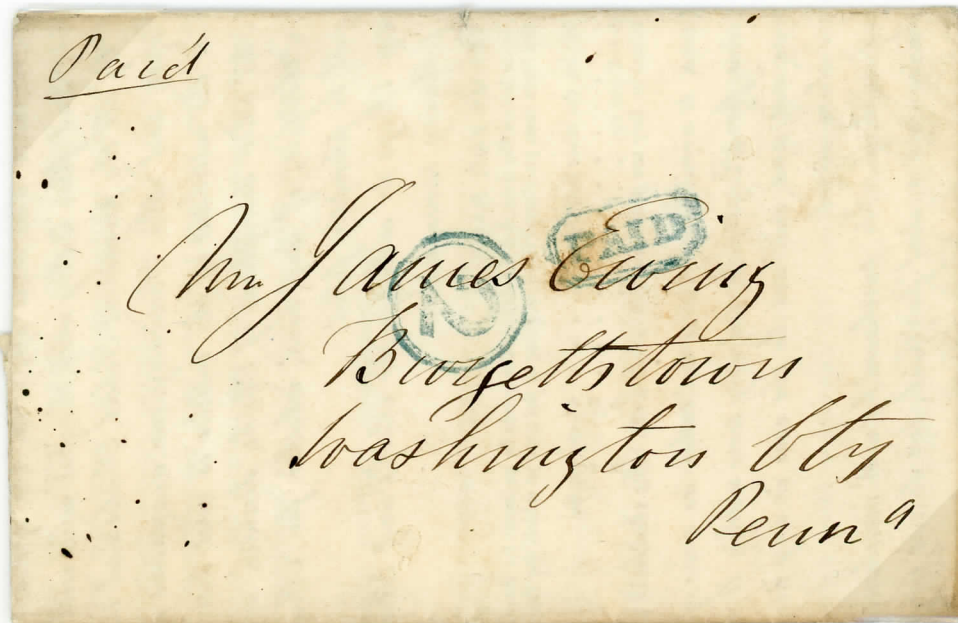 Paid
PAID
Mr. James Ewing
2
Burgettstown
Washington Cty
Penn a